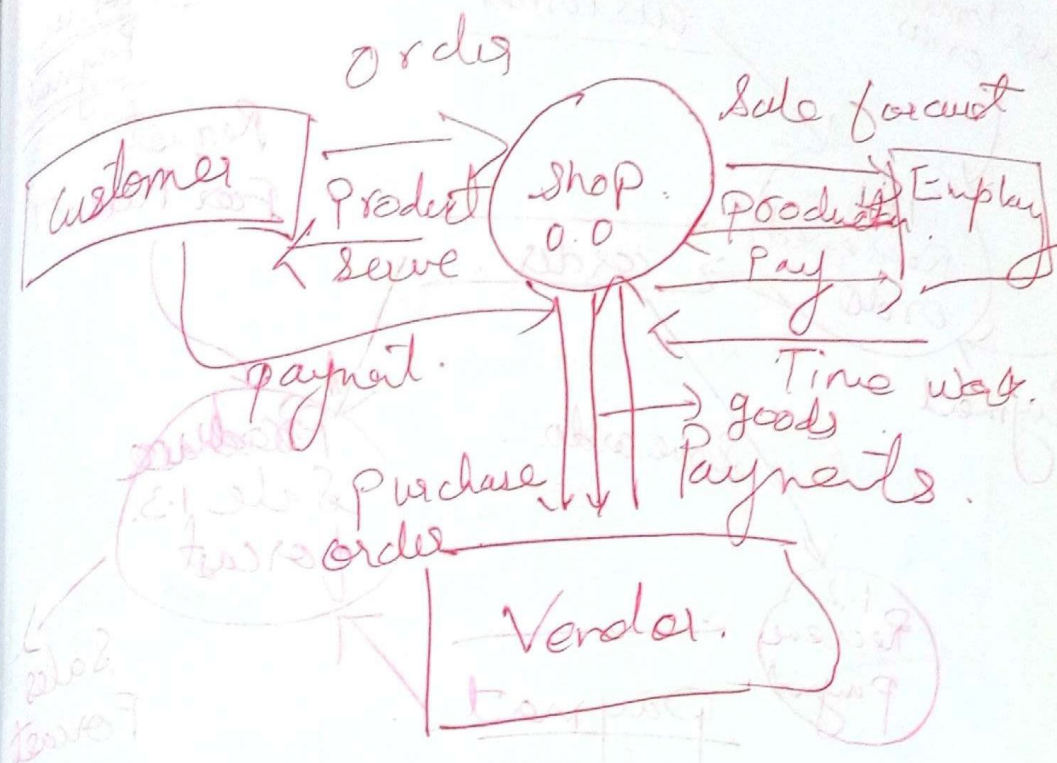 Order
Sale forcaust
Customer
Product
serve
Shop.
0.0
Production
Pay
Employ
payment.
Time work.
goods
Payments.
Purchase
order
Vendor.